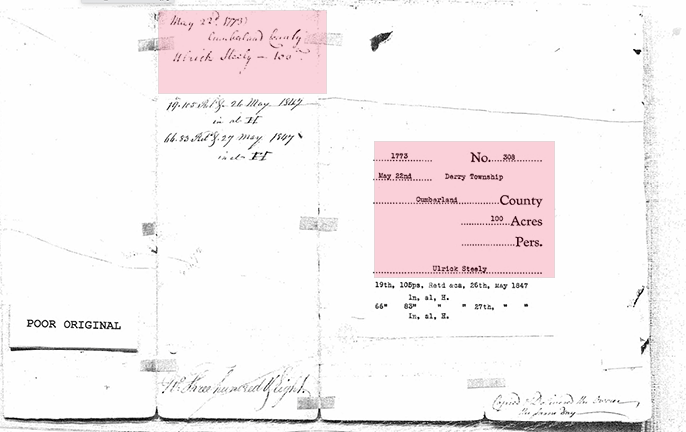 May 22d 1773
Cumberland County
Ulrick Steely — 100
19.105 Ret.d 26 May 1847
in al H
66.83 Ret.d 27 May 1847
in al H
No. Three hundred & eight
POOR ORIGINAL
1773 No. 308
May 22nd Derry Township
Cumberland County
100 Acres
Pers.
Ulrick Steely
19th, 105ps, Retd aca, 26th, May 1847
In, al, H.
66" 83" " " 27th, " "
In, al, E.
Copied & Delivered the Survr
the same Day